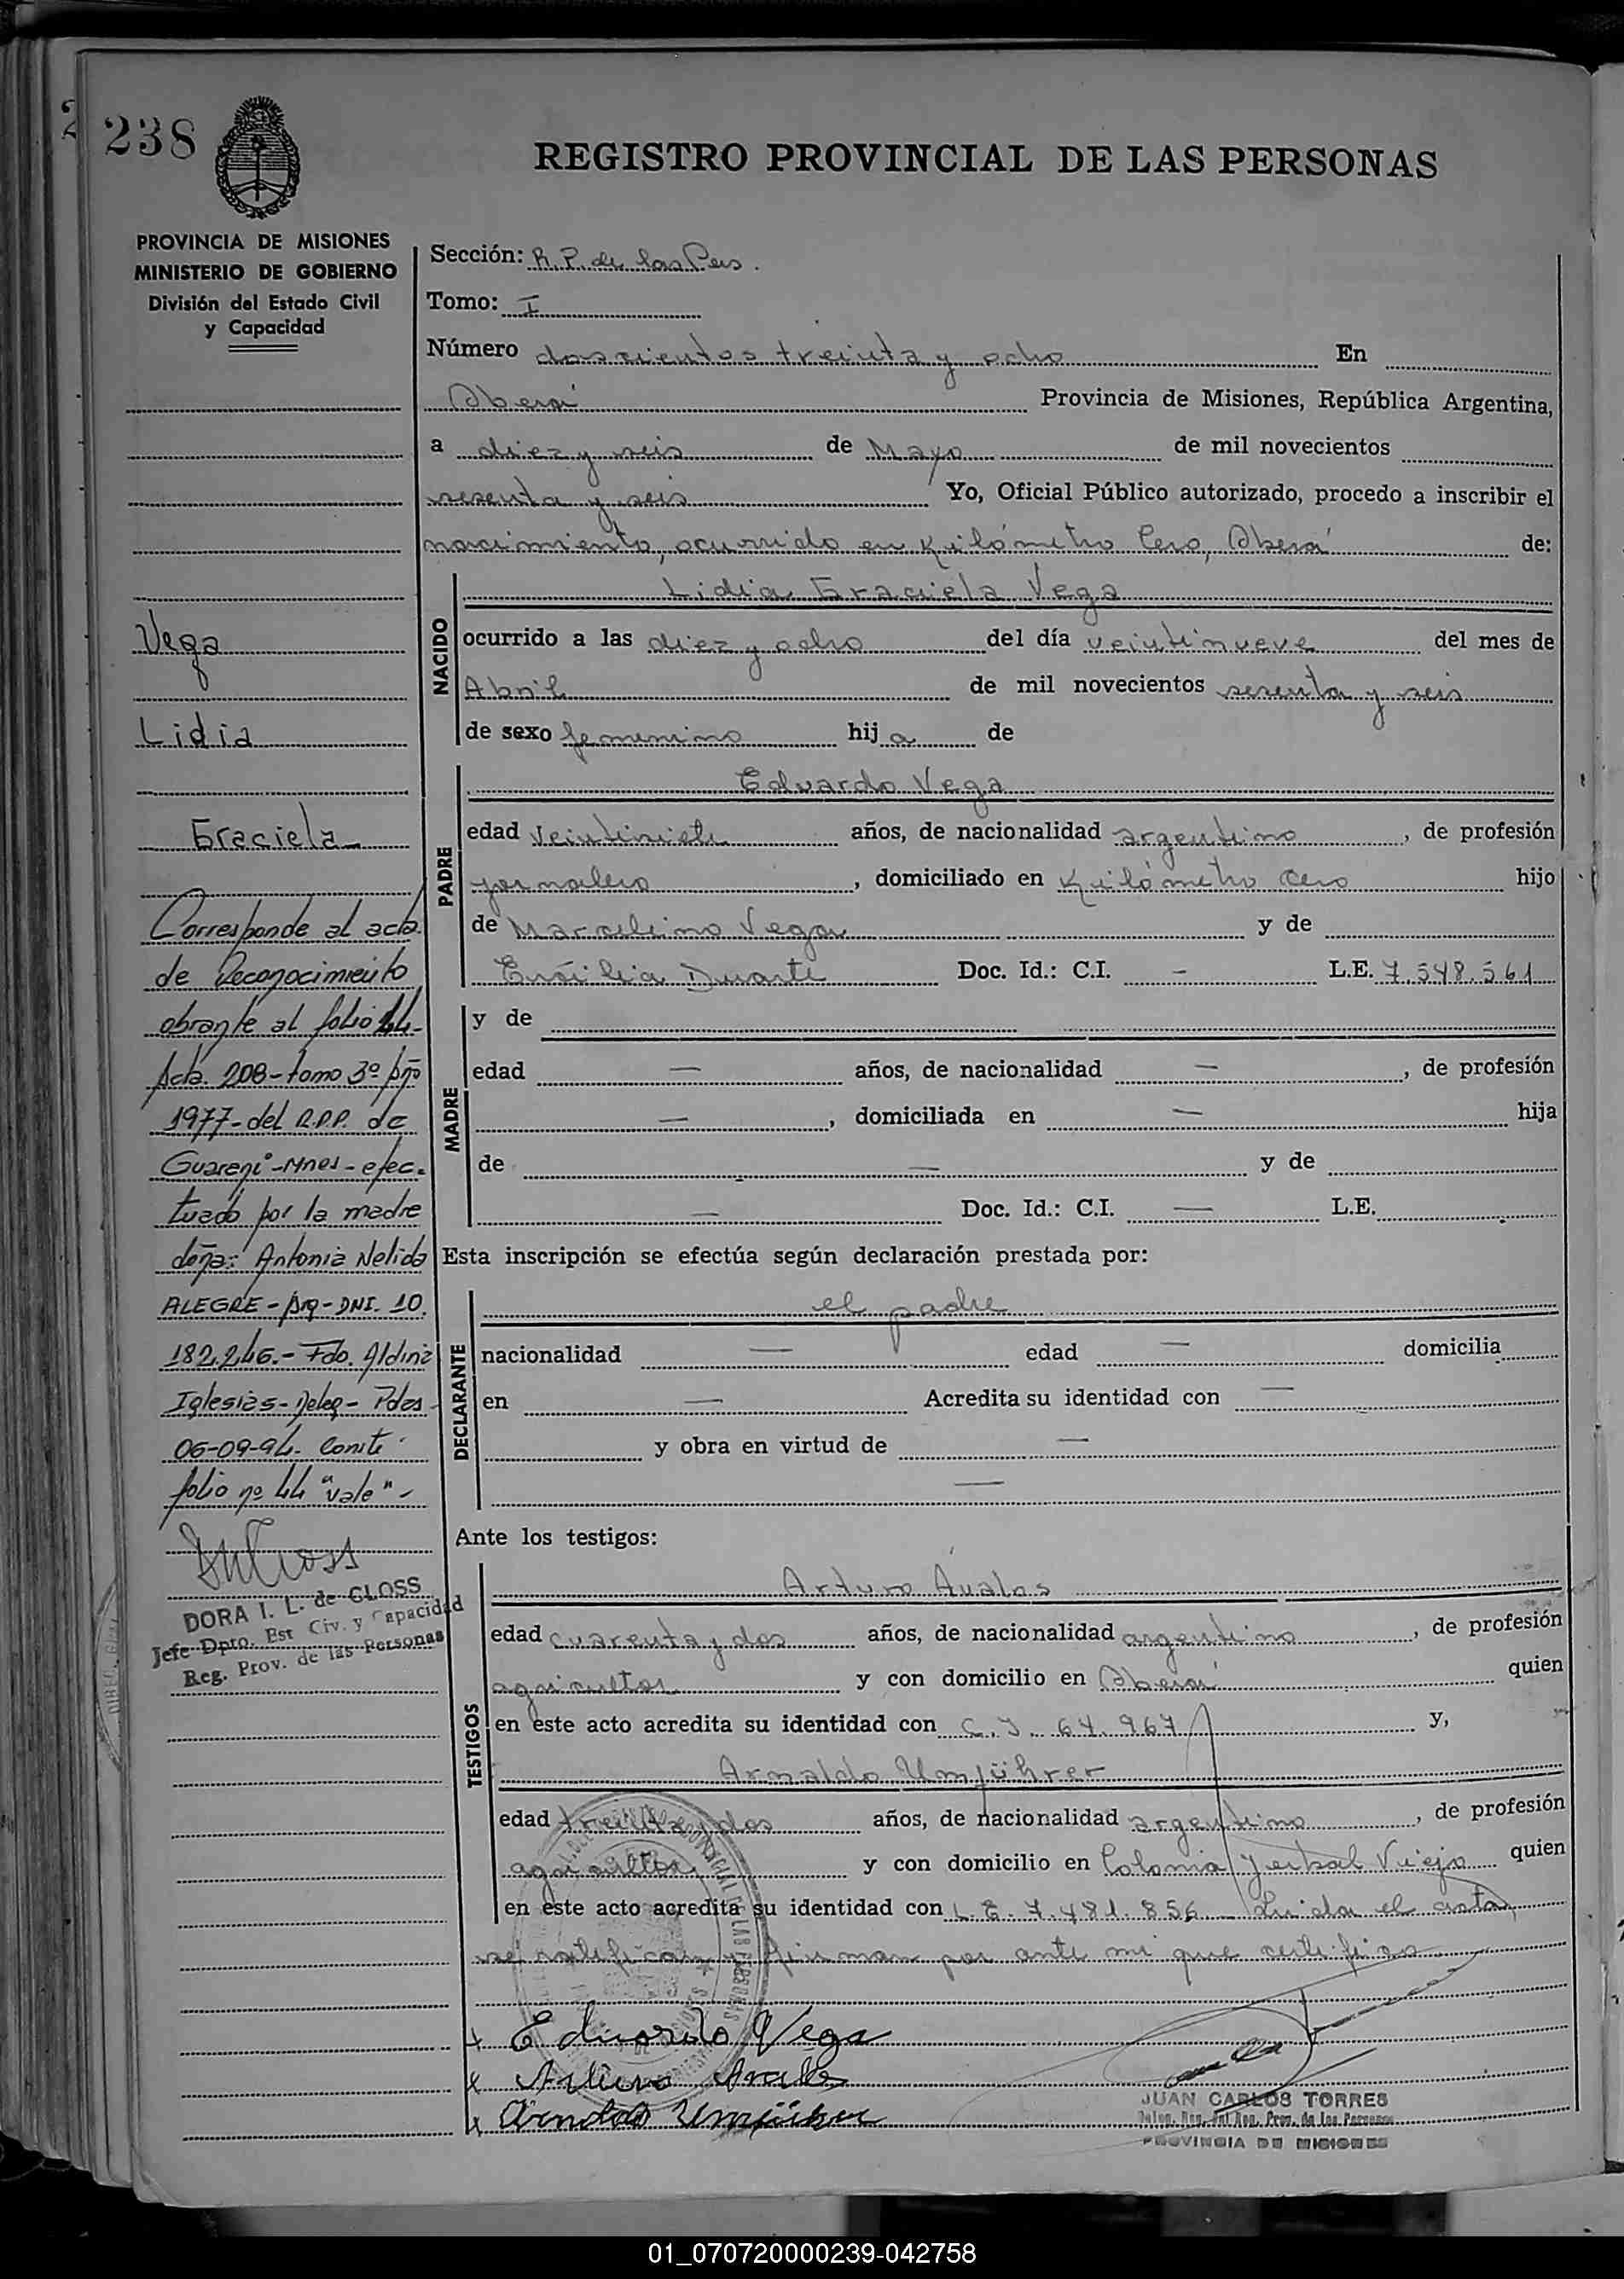 238
REGISTRO PROVINCIAL DE LAS PERSONAS
PROVINCIA DE MISIONES
MINISTERIO DE GOBIERNO
División del Estado Civil
y Capacidad
Vega
Lidia
Graciela
Corresponde al acta
de Reconocimiento
obrante al folio 44-
Acta. 208-tomo 3º Año
1977-del R.P.P. de
Guarani-Mnes-efec-
tuado por la madre
doña: Antonia Nelida
ALEGRE-Arg-DNI. 10.
182.246.-Fdo. Aldina
Iglesias-Deleg-Pdas
06-09-94.
folio nº 44 "vale"-
DORA I. L. de GLOSS
Jefe Dpto. Est Civ. y Capacidad
Reg. Prov. de las Personas
Sección: R. P. de las Pers.
Tomo: I
Número doscientos treinta y ocho En
Oberá Provincia de Misiones, República Argentina,
a diez y seis de Mayo de mil novecientos
sesenta y seis Yo, Oficial Público autorizado, procedo a inscribir el
nacimiento, ocurrido en Kilómetro Cero, Oberá de:
NACIDO
Lidia Graciela Vega
ocurrido a las diez y ocho del día veintinueve del mes de
Abril de mil novecientos sesenta y seis
de sexo femenino hij a de
PADRE
Eduardo Vega
edad veintisiete años, de nacionalidad argentino, de profesión
jornalero, domiciliado en Kilómetro Cero hijo
de Marcelino Vega y de
Duarte Doc. Id.: C.I. - L.E. 7.548.561
MADRE
y de
edad — años, de nacionalidad —, de profesión
—, domiciliada en — hija
de — y de
— Doc. Id.: C.I. — L.E.
Esta inscripción se efectúa según declaración prestada por:
DECLARANTE
el padre
nacionalidad — edad — domicilia
en — Acredita su identidad con —
y obra en virtud de —
—
Ante los testigos:
TESTIGOS
Arturo Avalos
edad cuarenta y dos años, de nacionalidad argentino, de profesión
agricultor y con domicilio en Oberá quien
en este acto acredita su identidad con C. I. 67.967 y,
Arnaldo Umführer
edad treinta y dos años, de nacionalidad argentino, de profesión
agricultor y con domicilio en Colonia Yerbal Viejo quien
en este acto acredita su identidad con L. E. 7.481.856 Leida el acta,
se ratifican y firman por ante mi que certifico
x Eduardo Vega
x Arturo Avalos
x Arnoldo Umführer
JUAN CARLOS TORRES
PROVINCIA DE MISIONES
01_070720000239-042758